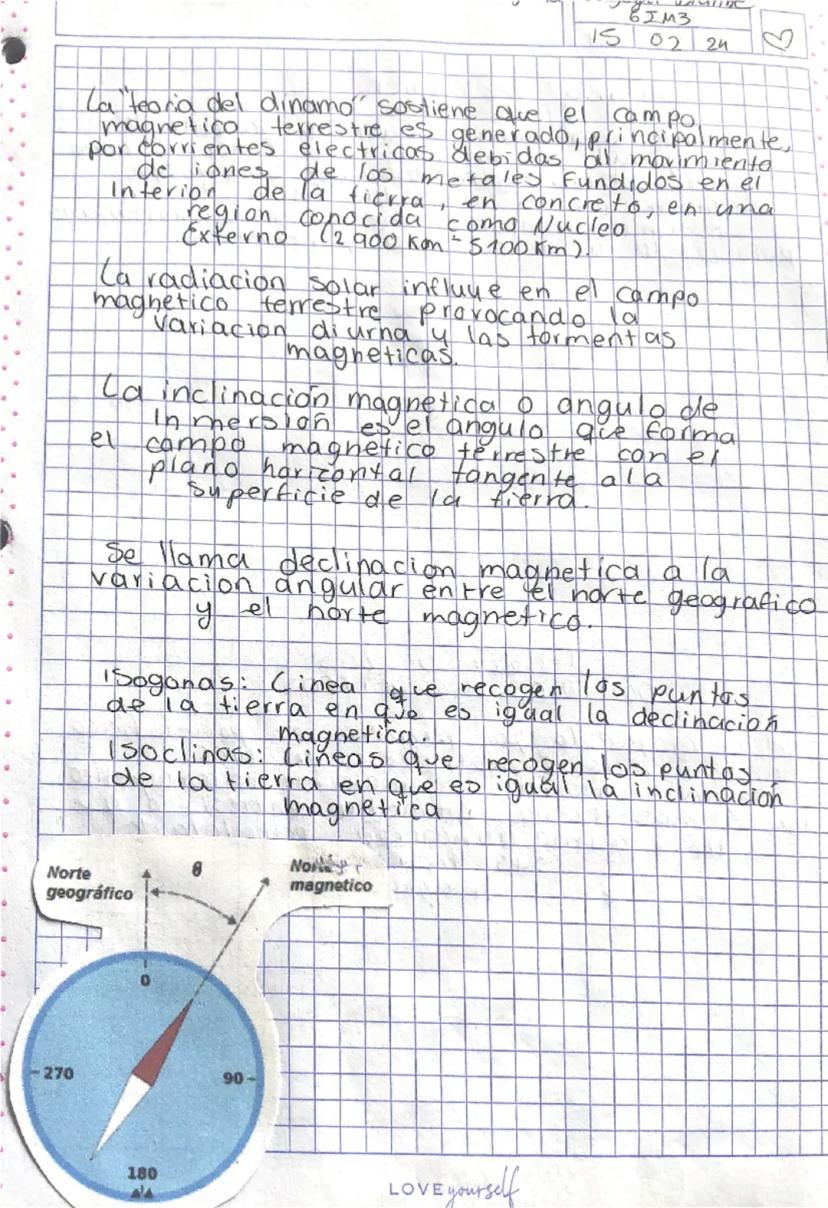 6IM3
15 02 24
La "teoria del dinamo" sostiene que el campo
magnetico terrestre es generado, principalmente,
por corrientes electricas debidas al movimiento
de iones de los metales fundidos en el
interior de la tierra, en concreto, en una
region conocida como Nucleo
Externo (2 900 Km - 5100 Km).
La radiacion solar influye en el campo
magnetico terrestre provocando la
variacion diurna y las tormentas
magneticas.
La inclinación magnetica o angulo de
inmersion es el angulo que forma
el campo magnetico terrestre con el
plano horizontal tangente ala
superficie de la tierra.
Se llama declinacion magnetica a la
variacion angular entre el norte geografico
y el norte magnetico.
Isogonas: Linea que recogen los puntos
de la tierra en que es igual la declinacion
magnetica.
Isoclinas: Lineas que recogen los puntos
de la tierra en que es igual la inclinación
magnetica
Norte
geográfico
θ
Norte
magnetico
0
270
90
180
LOVE yourself